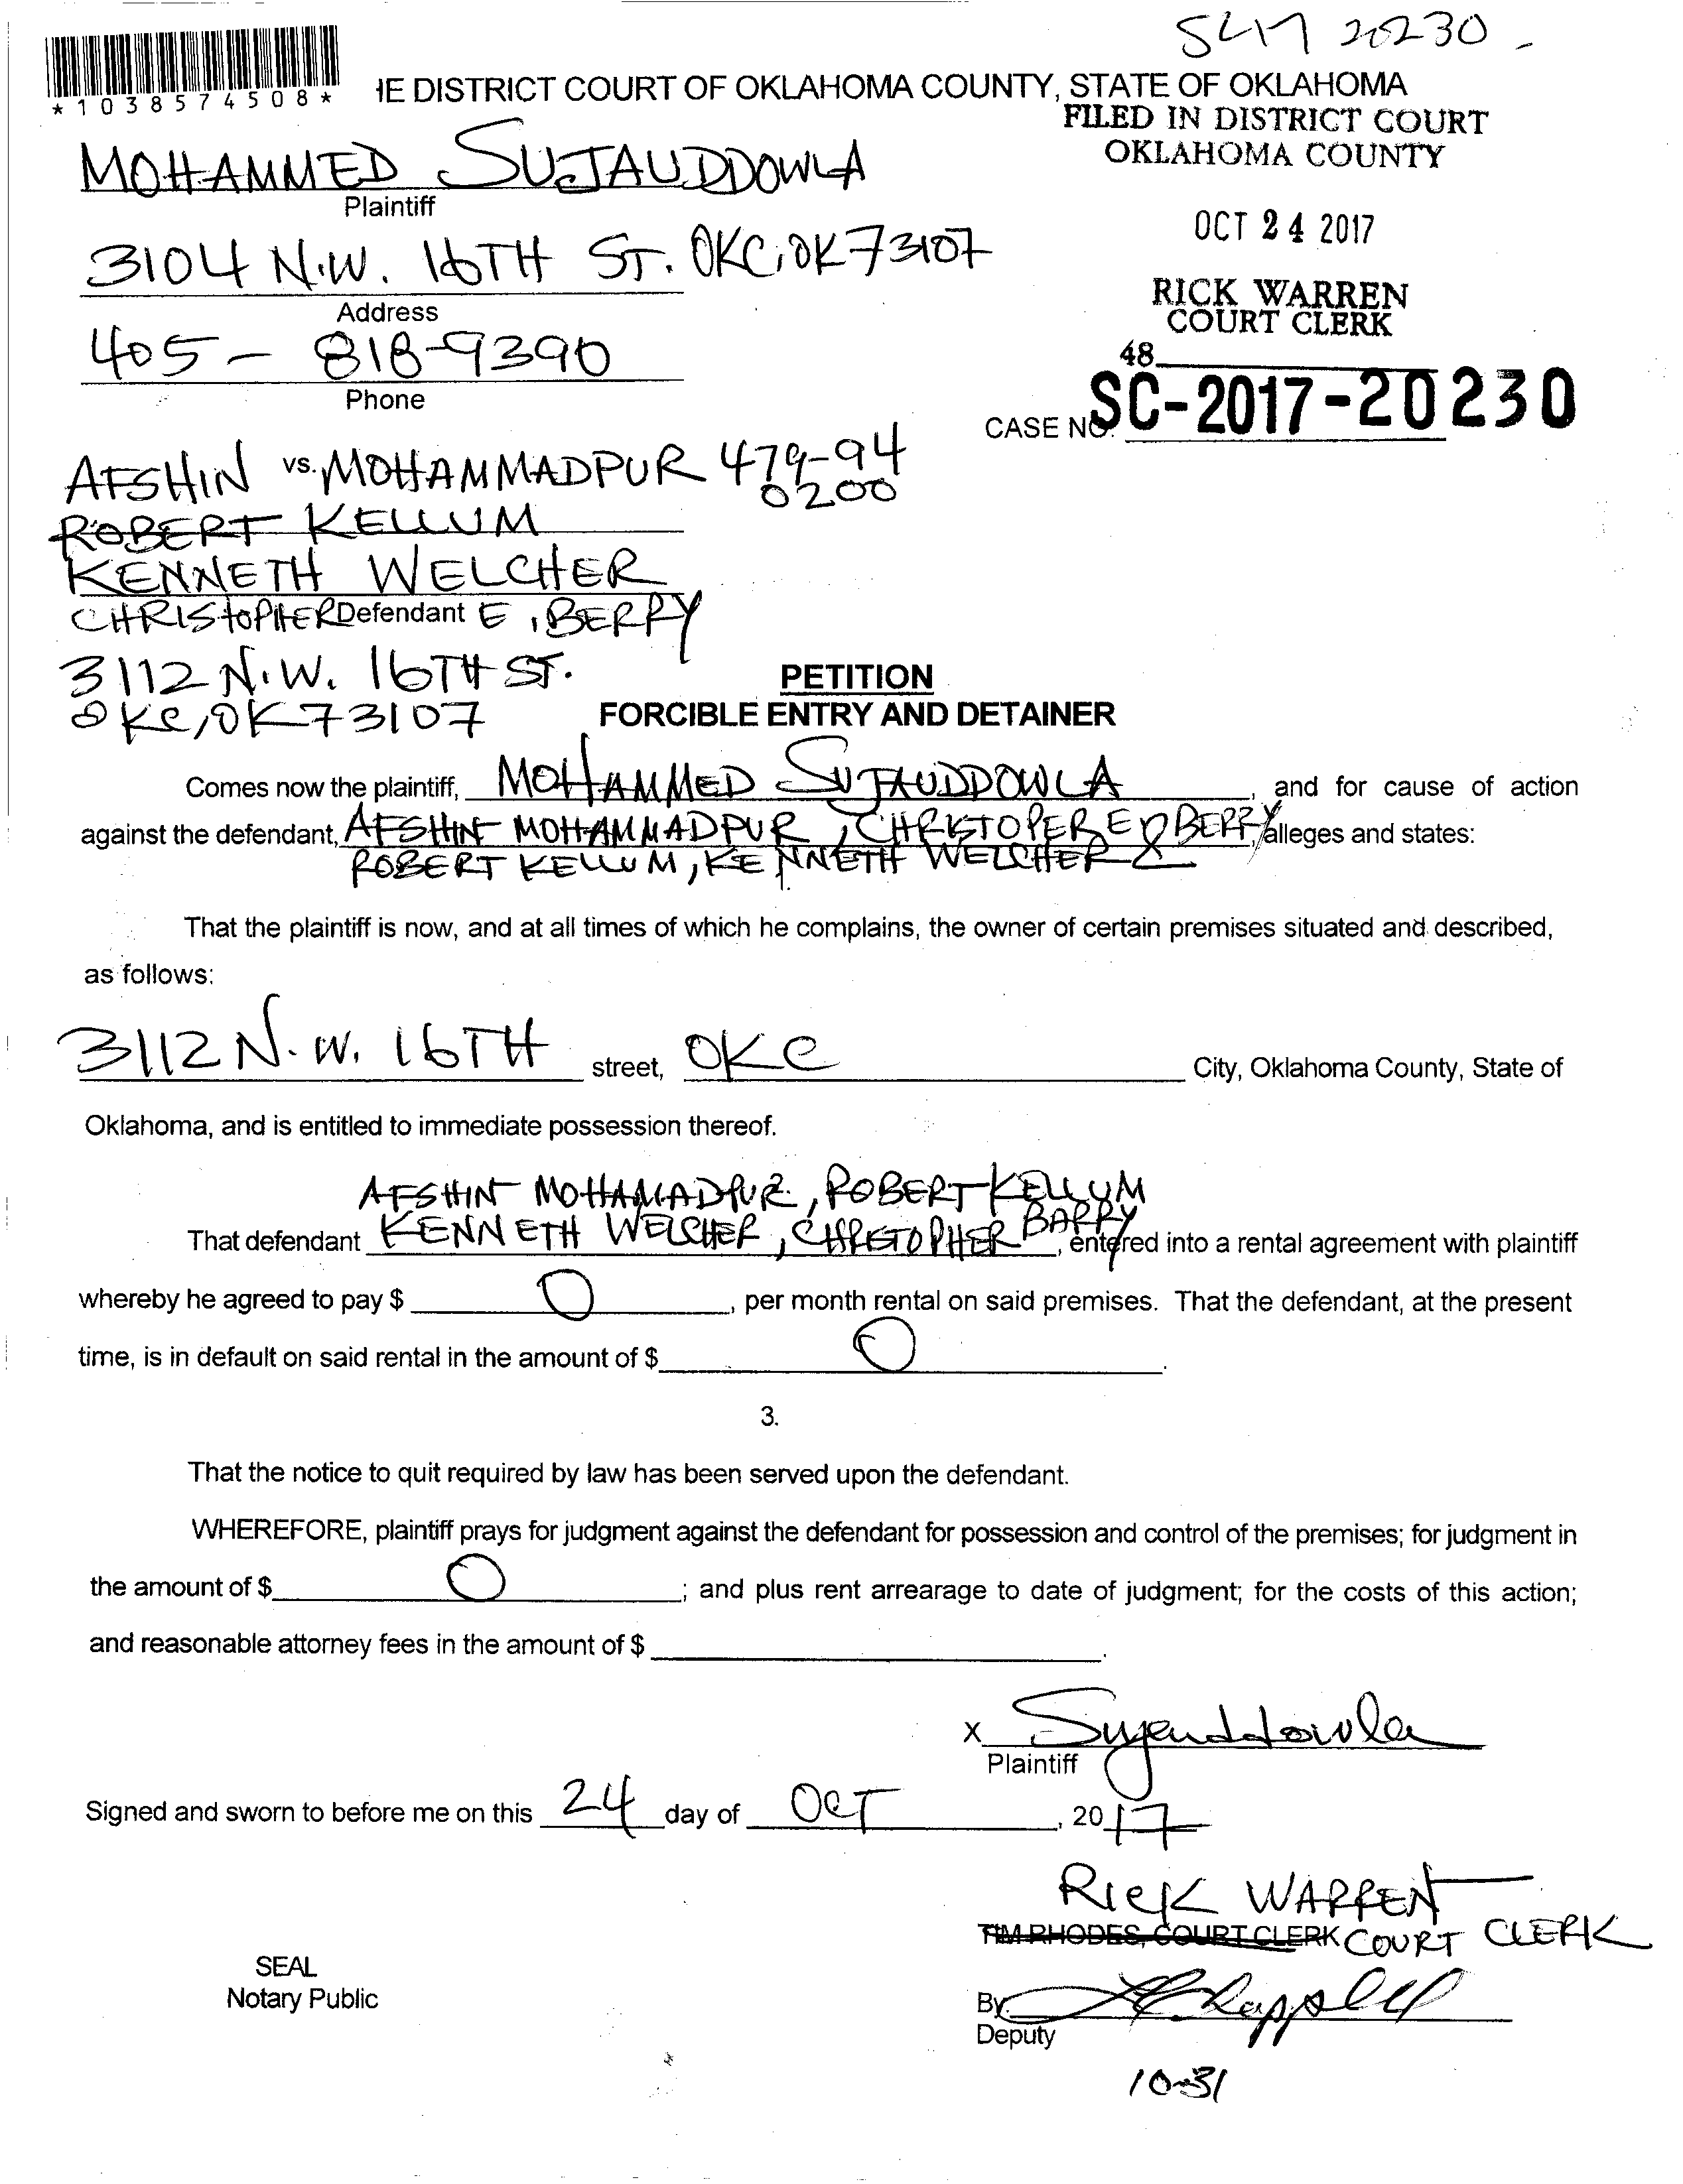 SC-17 20230
*1038574508*
HE DISTRICT COURT OF OKLAHOMA COUNTY, STATE OF OKLAHOMA
FILED IN DISTRICT COURT
OKLAHOMA COUNTY
MOHAMMED SUJAUDDOWLA
Plaintiff
OCT 24 2017
3104 N.W. 16TH ST. OKC, OK 73107
Address
RICK WARREN
COURT CLERK
405-818-9390
Phone
48
CASE NO. SC-2017-20230
AFSHIN vs. MOHAMMADPUR 479-94
0200
ROBERT KELLUM
KENNETH WELCHER
CHRISTOPHER Defendant E, BERRY
3112 N.W. 16TH ST.
OKC, OK 73107
PETITION
FORCIBLE ENTRY AND DETAINER
Comes now the plaintiff, MOHAMMED SUJAUDDOWLA, and for cause of action
against the defendant, AFSHIN MOHAMMADPUR, CHRISTOPER E BERRY, alleges and states:
ROBERT KELLUM, KENNETH WELCHER &
That the plaintiff is now, and at all times of which he complains, the owner of certain premises situated and described,
as follows:
3112 N.W. 16TH street, OKC City, Oklahoma County, State of
Oklahoma, and is entitled to immediate possession thereof.
AFSHIN MOHAMADPUR, ROBERT KELLUM
That defendant KENNETH WELCHER, CHRISTOPHER BARRY, entered into a rental agreement with plaintiff
whereby he agreed to pay $ 0, per month rental on said premises. That the defendant, at the present
time, is in default on said rental in the amount of $ 0.
3.
That the notice to quit required by law has been served upon the defendant.
WHEREFORE, plaintiff prays for judgment against the defendant for possession and control of the premises; for judgment in
the amount of $ 0; and plus rent arrearage to date of judgment; for the costs of this action;
and reasonable attorney fees in the amount of $ .
X Sujauddowla
Plaintiff
Signed and sworn to before me on this 24 day of OCT, 2017
RICK WARREN
TIM RHODES, COURT CLERK COURT CLERK
SEAL
Notary Public
By Chappell
Deputy
10-31